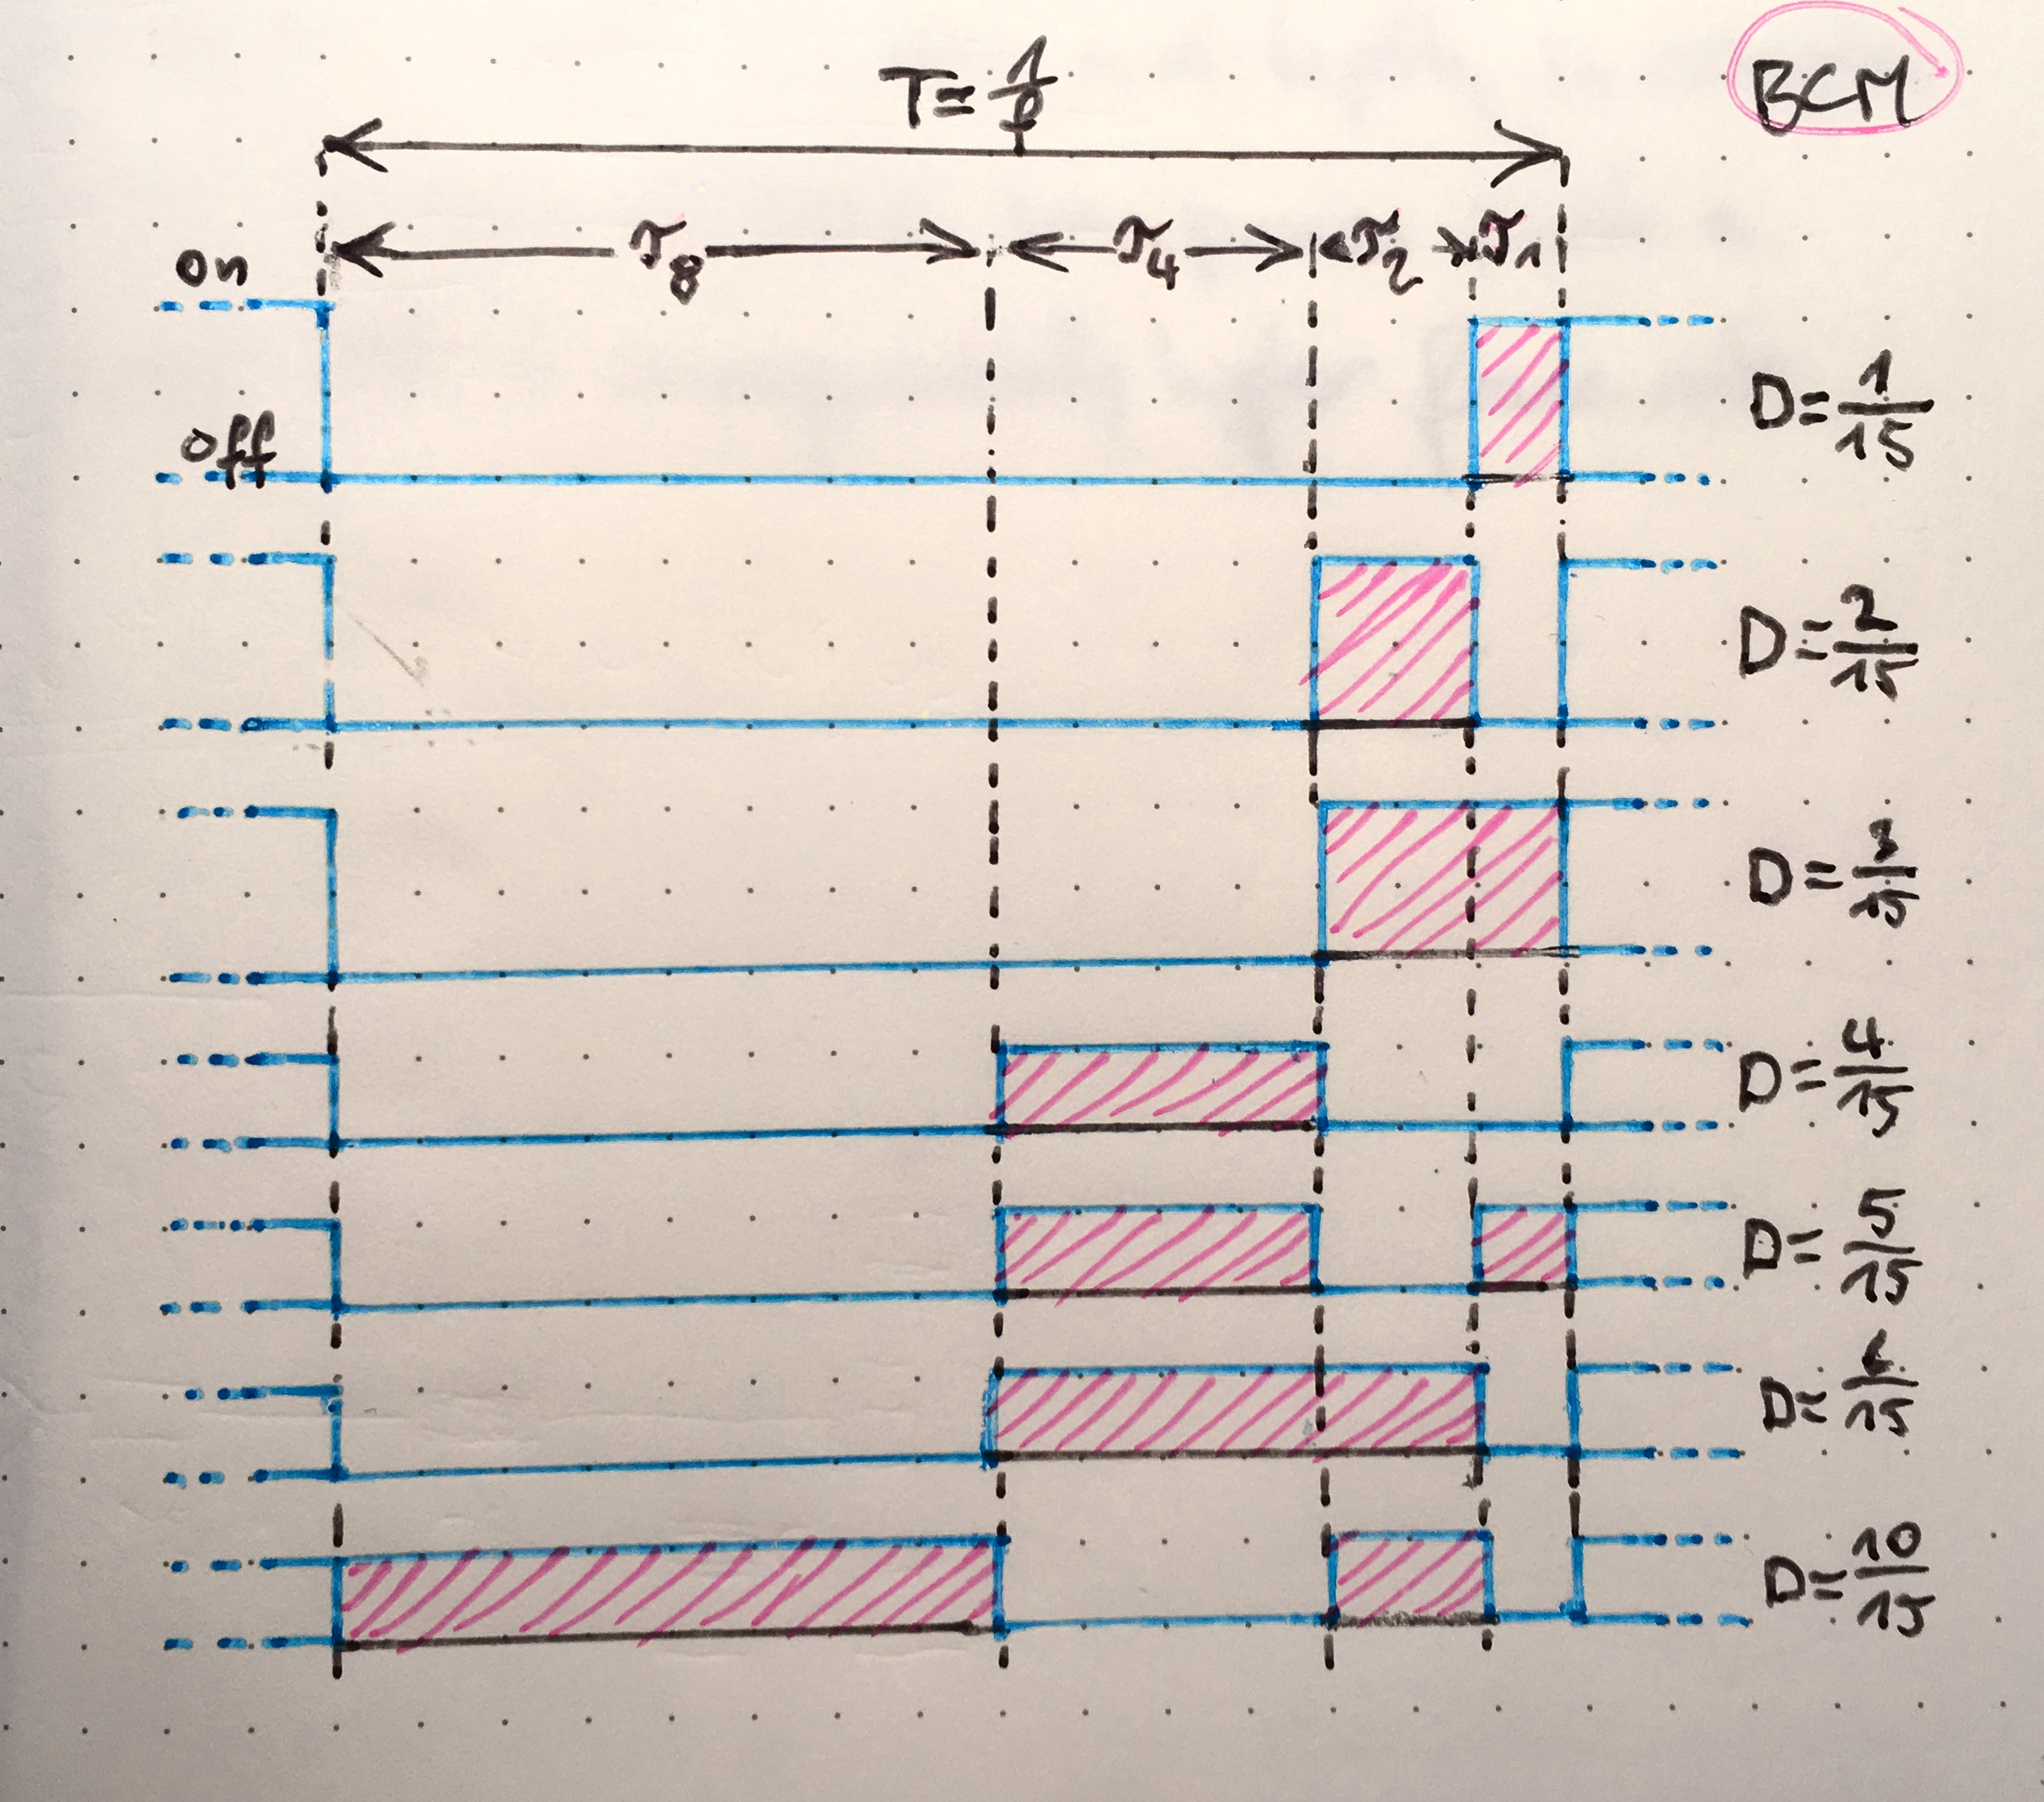 T=1/f
BCM
τ8 τ4 τ2 τ1
on
off
D=1/15
D=2/15
D=3/15
D=4/15
D=5/15
D=6/15
D=10/15